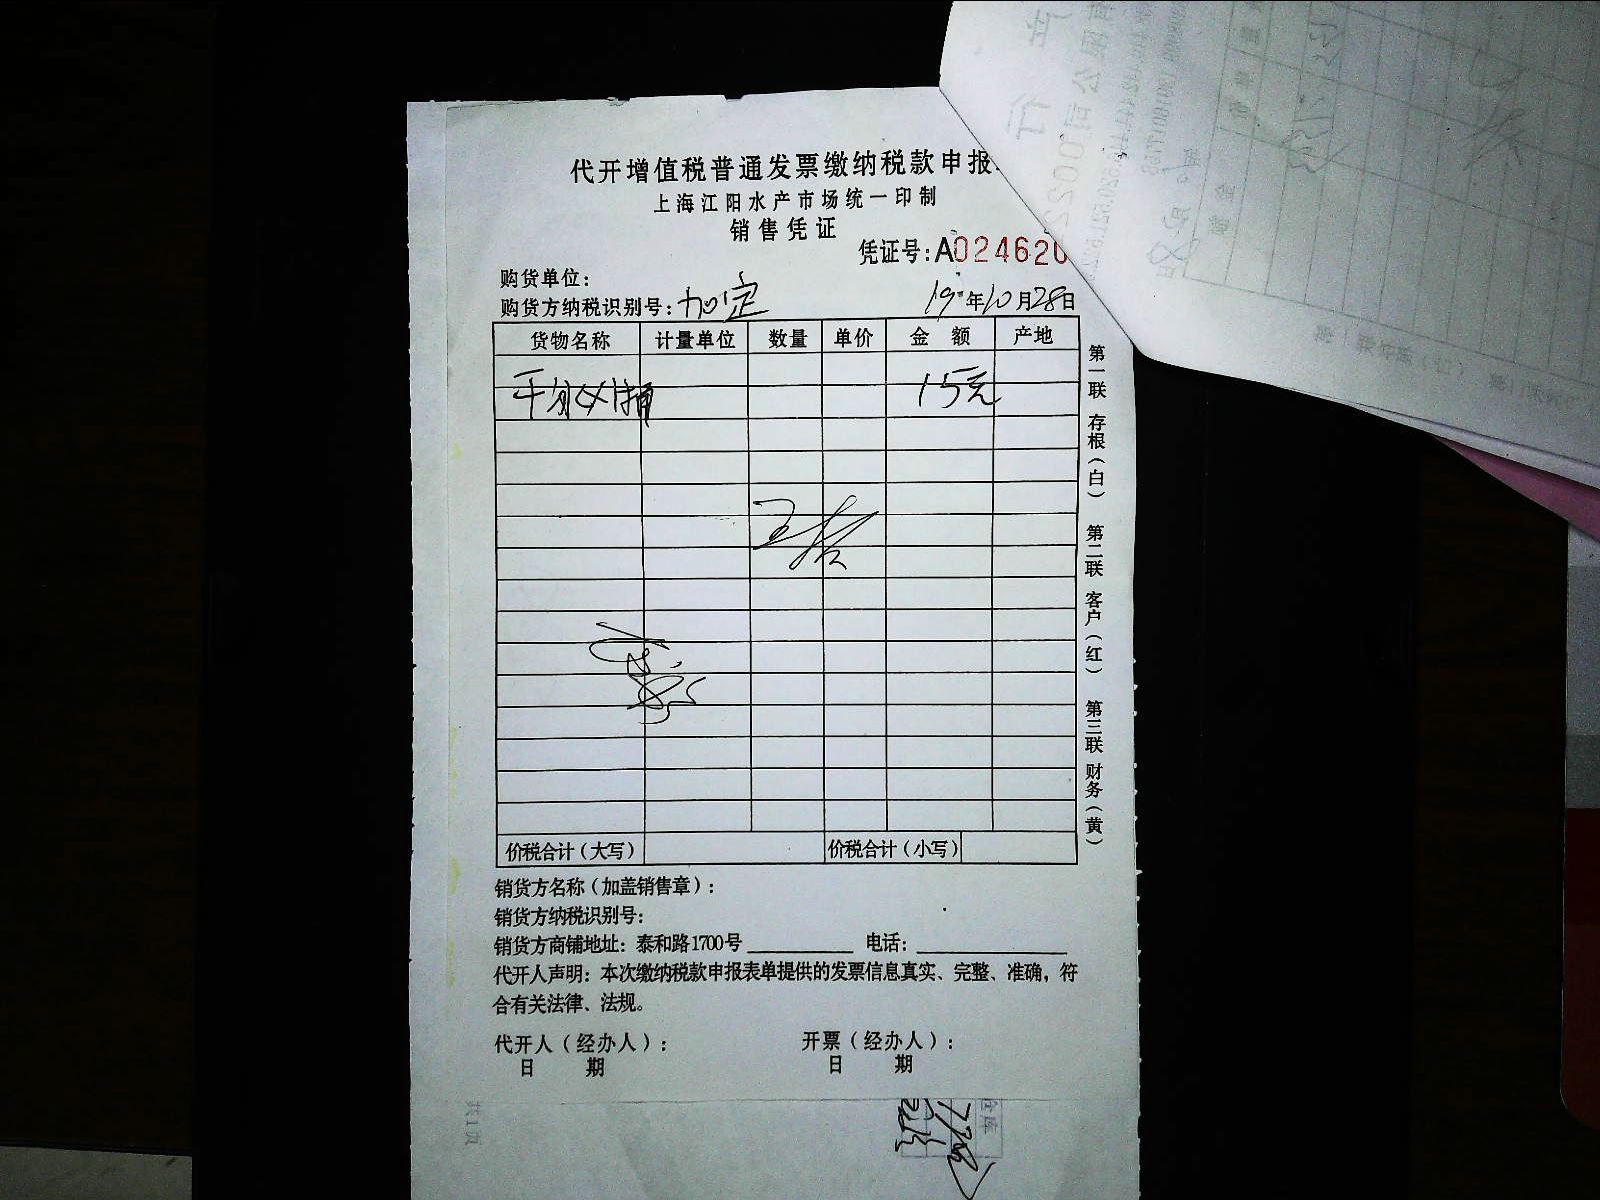 代开增值税普通发票缴纳税款申报
上海江阳水产市场统一印制
销售凭证
凭证号:A024620
购货单位:
购货方纳税识别号:加定 19年10月28日
货物名称 计量单位 数量 单价 金额 产地
15元
价税合计(大写) 价税合计(小写)
第一联 存根(白) 第二联 客户(红) 第三联 财务(黄)
销货方名称(加盖销售章):
销货方纳税识别号:
销货方商铺地址:泰和路1700号 电话:
代开人声明:本次缴纳税款申报表单提供的发票信息真实、完整、准确,符
合有关法律、法规。
代开人(经办人): 开票(经办人):
日 期 日 期
共1页